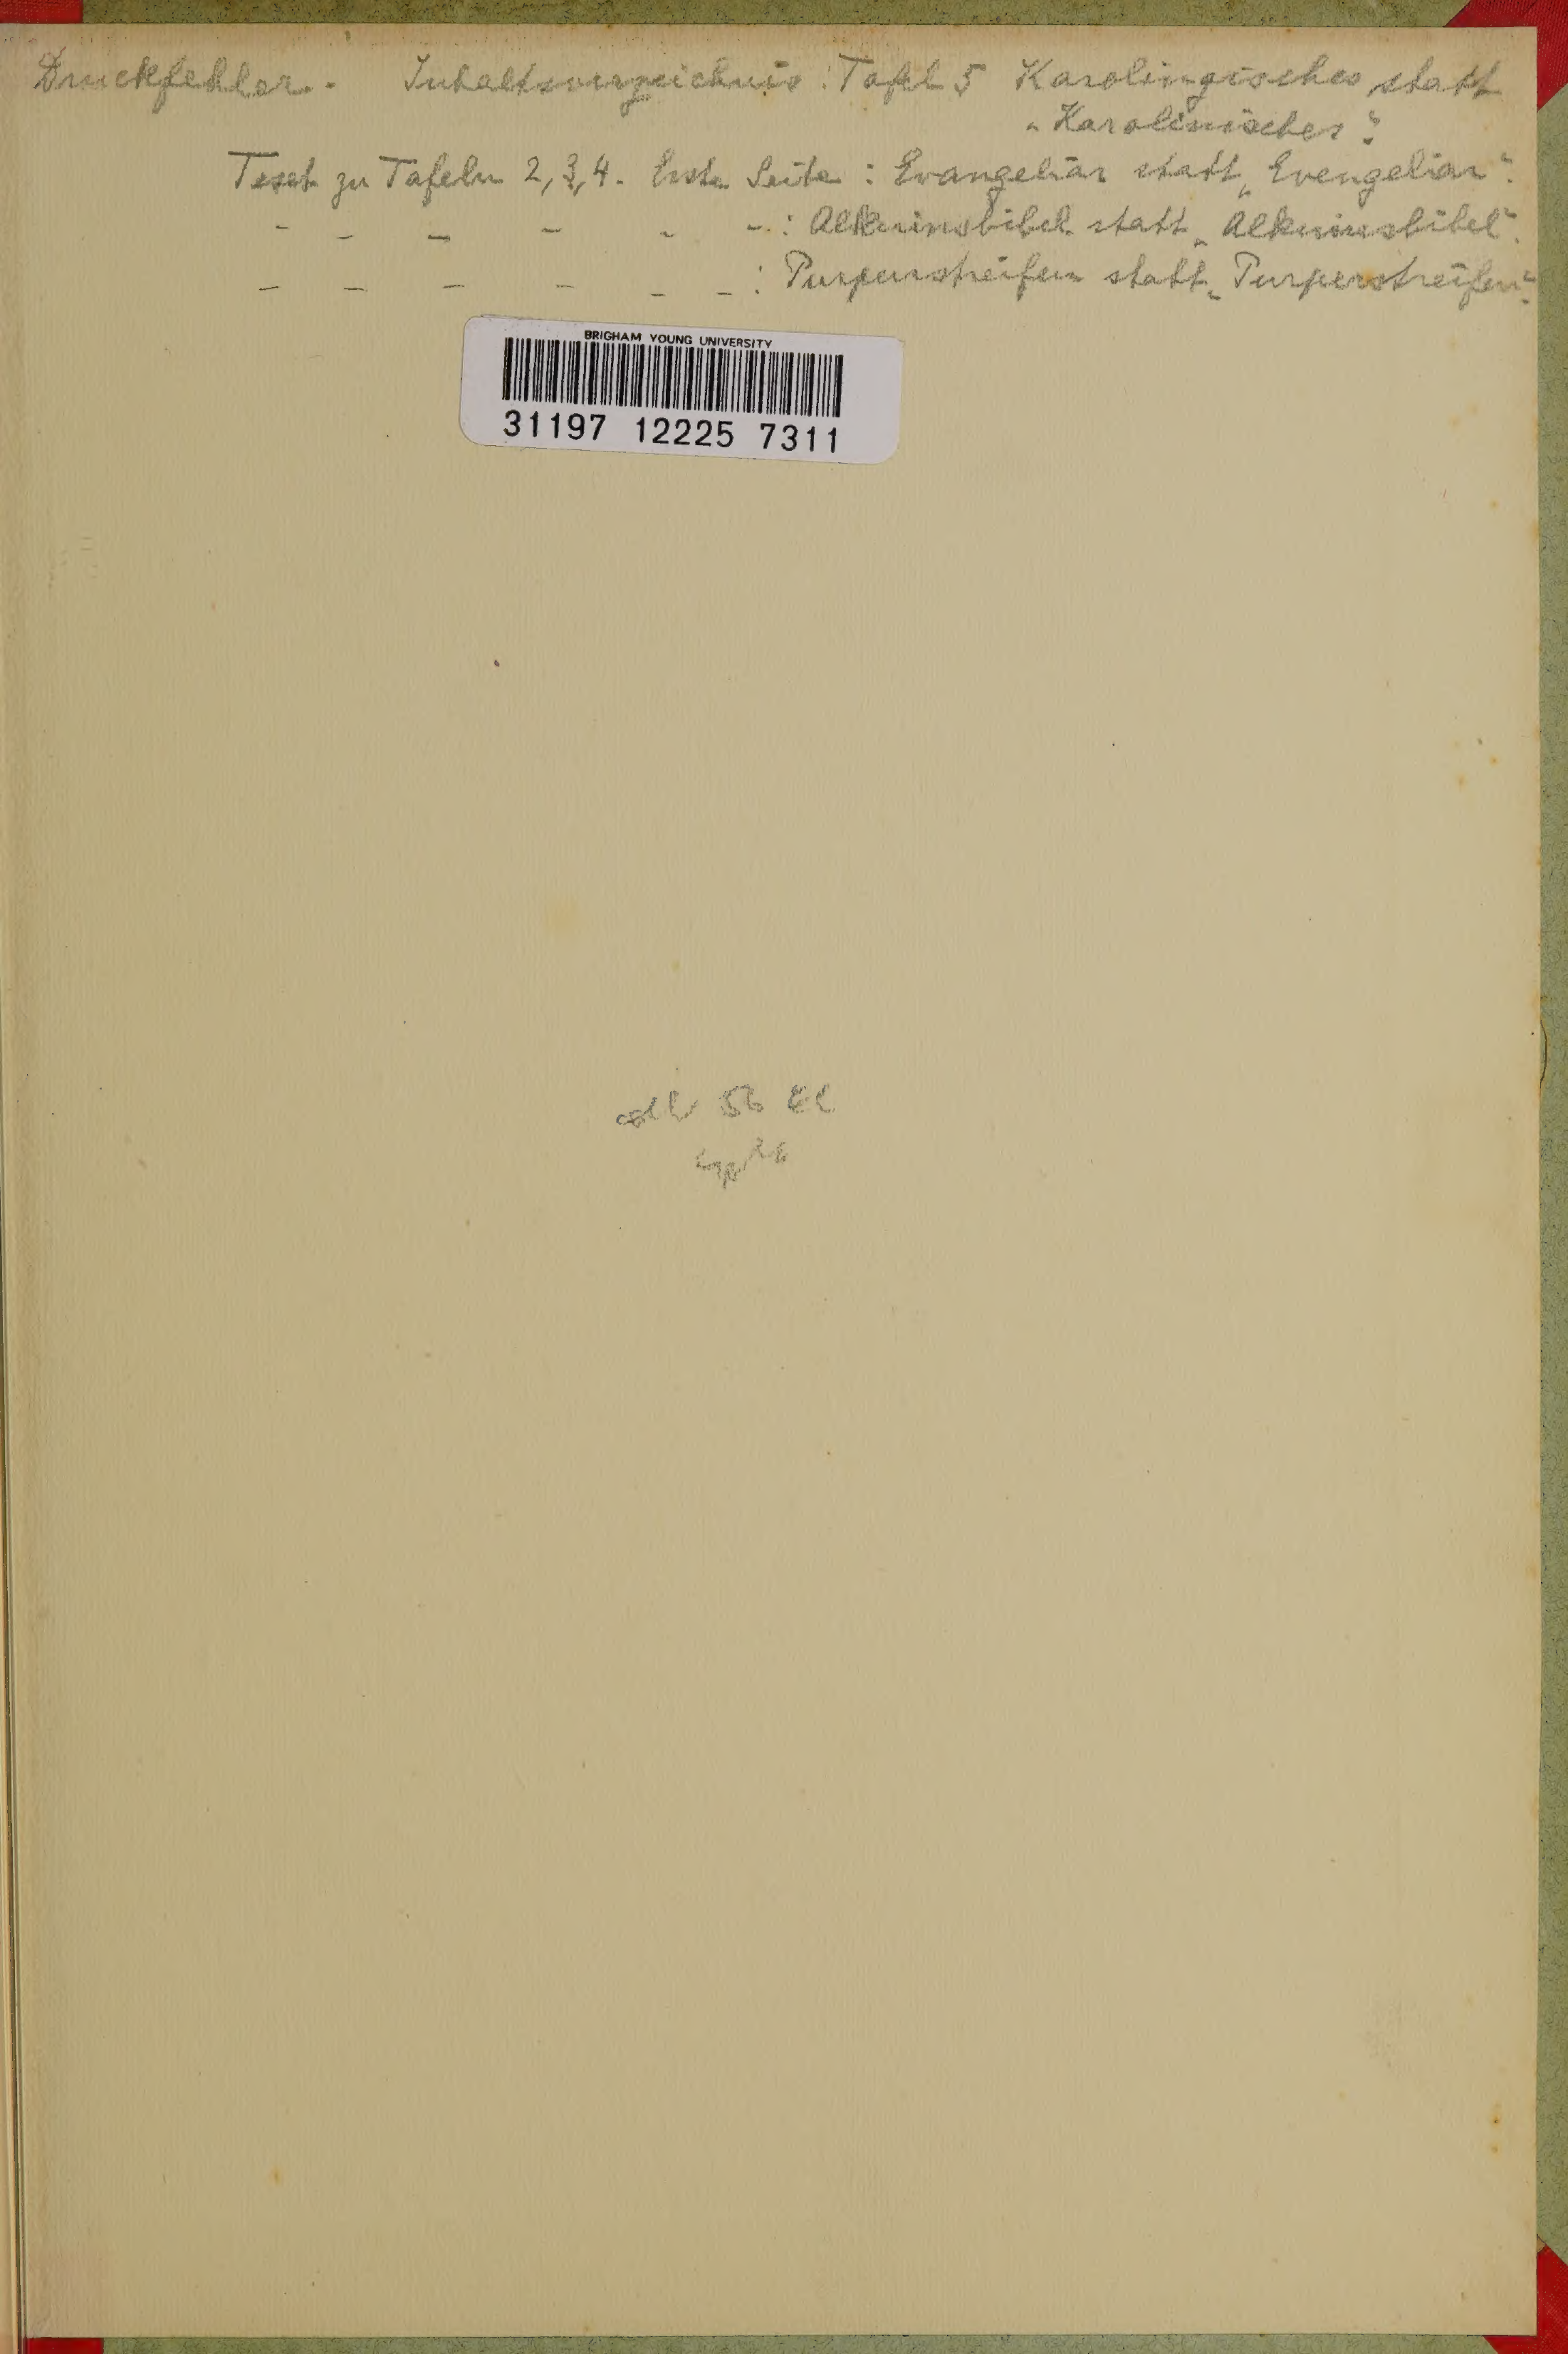 Druckfehler. - Inhaltsverzeichnis: Tafel 5 Karolingisches statt
„Karolinisches“.
Text zu Tafeln 2, 3, 4. Erste Seite: Evangeliar statt „Evengeliar“.
- - - - - - : Alkuinsbibel statt „Alkuinusbibel“.
- - - - - - : Purpurstreifen statt „Purperstreifen“.
BRIGHAM YOUNG UNIVERSITY
31197 12225 7311
56